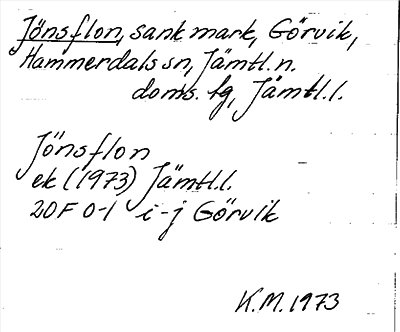 Jönsflon, sank mark, Görvik,
Hammerdals sn, Jämtl. n.
doms. fg, Jämtl. l.
Jönsflon
ek (1973) Jämtl. l.
20F 0-1 i-j Görvik
K.M. 1973